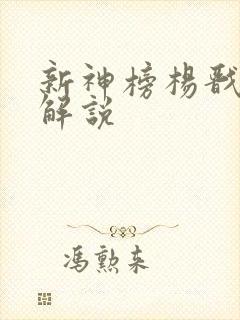 新神榜楊戩
解說
馮勲来